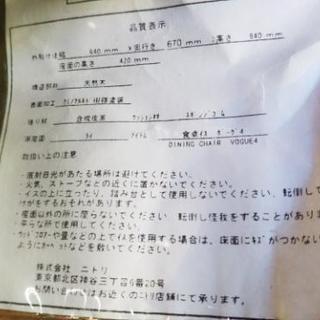 品質表示
外形寸法幅 640 mm ×奥行き 670 mm ×高さ 840 mm
座面の高さ 420 mm
構造部材 天然木
表面加工 樹脂塗装
張り材 合成皮革 クッション材 ウレタンフォーム
原産国 タイ アイテム 食卓イス ボーグ4
DINING CHAIR VOGUE4
取扱い上の注意
・直射日光があたる場所は避けてください。
・火気、ストーブなどの近くに置かないでください。
・イスの上に立ったり、踏み台として使用しないでください、転倒して
けがをするおそれがあります。
・座面以外の所に座らないでください、転倒し怪我をすることがあります
・平らな所で使用してください。
・ウッドフロアーや畳などの上でイスを使用する場合は、床面にキズがつかない
ようにカーペットなどを敷いてください。
株式会社 ニトリ
東京都北区神谷三丁目6番20号
お問い合せはお近くのニトリ店舗にて承ります。